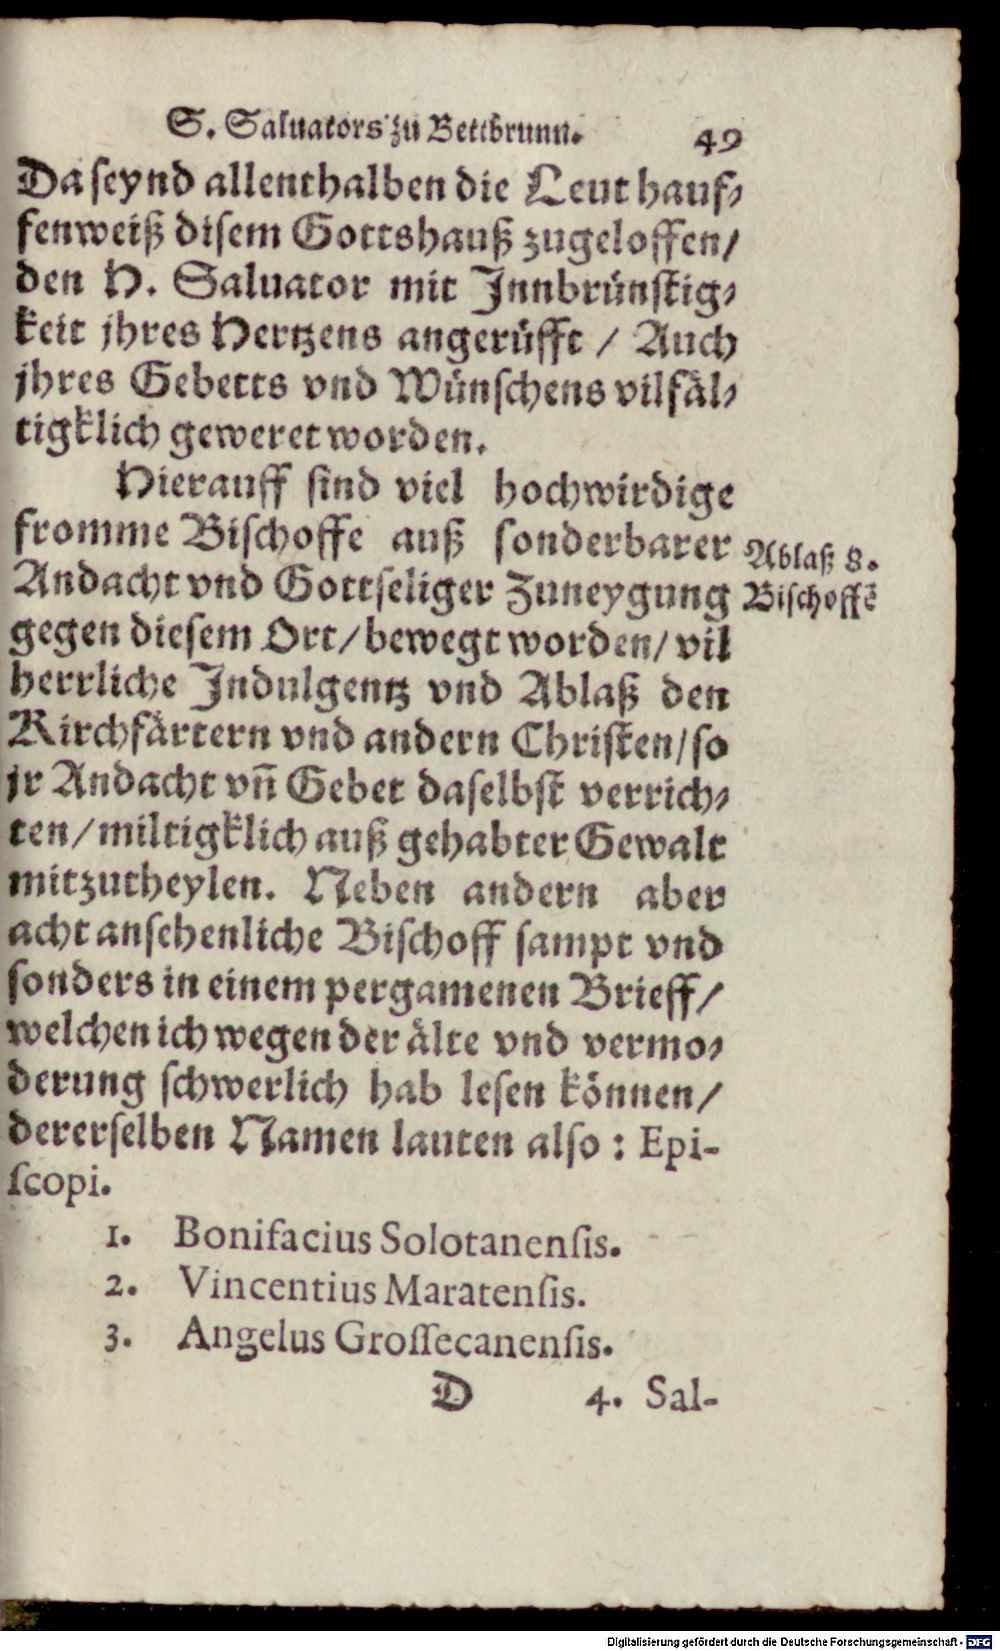 S. Saluators zu Bettbrunn. 49
Da seynd allenthalben die Leut hauf⸗
fenweiß disem Gottshauß zugeloffen/
den H. Saluator mit Innbrünstig⸗
keit jhres Hertzens angerüfft / Auch
jhres Gebetts vnd Wünschens vilfäl⸗
tigklich geweret worden.
Hierauff sind viel hochwirdige
fromme Bischoffe auß sonderbarer
Andacht vnd Gottseliger Zuneygung
gegen diesem Ort/ bewegt worden/ vil
herrliche Indulgentz vnd Ablaß den
Kirchfärtern vnd andern Christen/ so
jr Andacht vn̄ Gebet daselbst verrich⸗
ten/ miltigklich auß gehabter Gewalt
mitzutheylen. Neben andern aber
acht ansehenliche Bischoff sampt vnd
sonders in einem pergamenen Brieff/
welchen ich wegen der älte vnd vermo⸗
derung schwerlich hab lesen können/
dererselben Namen lauten also : Epi-
scopi.
1. Bonifacius Solotanensis.
2. Vincentius Maratensis.
3. Angelus Grossecanensis.
D 4. Sal-
Ablaß 8.
Bischoffē
Digitalisierung gefördert durch die Deutsche Forschungsgemeinschaft - DFG